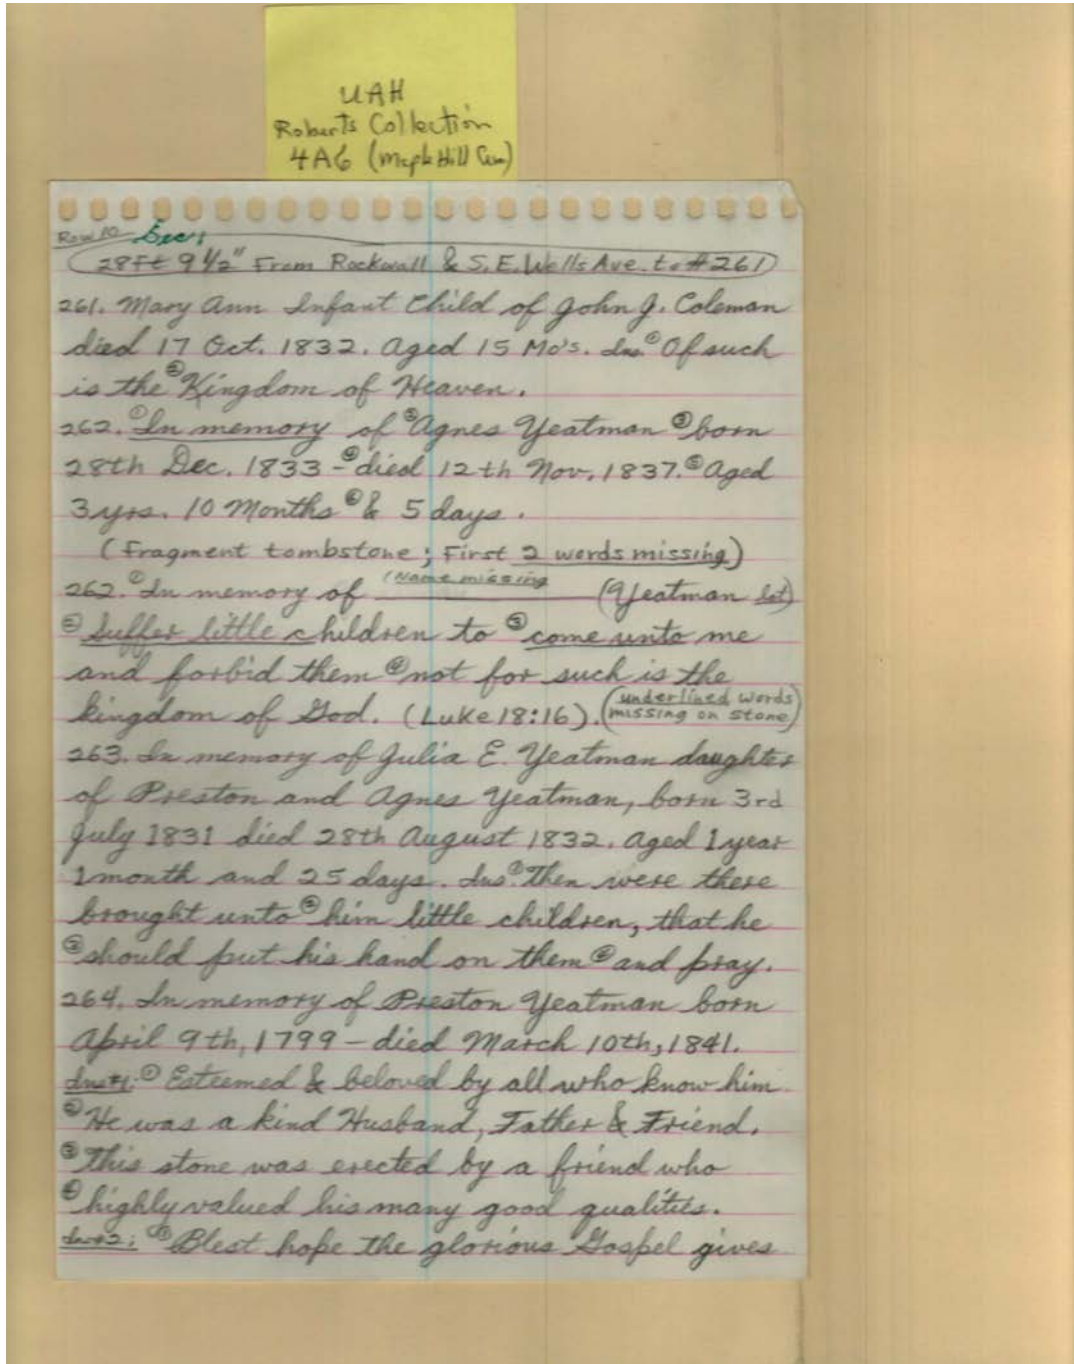 UAH
Roberts Collection
4A6 (Maple Hill Cem)
Row 10 Sec 1
28Ft 9½" From Rockwall & S.E. Wells Ave. to #261
261. Mary Ann Infant Child of John J. Coleman
died 17 Oct. 1832. Aged 15 Mo's. Ins. ① Of such
is the ② Kingdom of Heaven.
262. ① In memory of ② Agnes Yeatman ③ born
28th Dec. 1833 - ④ died 12th Nov. 1837. ⑤ Aged
3 yrs. 10 Months ⑥ & 5 days.
(Fragment tombstone; First 2 words missing)
262. ① In memory of (Name missing (Yeatman lot)
② Suffer little children to ③ come unto me
and forbid them ④ not for such is the
kingdom of God. (Luke 18:16). (underlined words
missing on stone)
263. In memory of Julia E. Yeatman daughter
of Preston and Agnes Yeatman, born 3rd
July 1831 died 28th August 1832. Aged 1 year
1 month and 25 days. Ins. ① Then were there
brought unto ② him little children, that he
③ should put his hand on them ④ and pray.
264. In memory of Preston Yeatman born
April 9th, 1799 - died March 10th, 1841.
Ins #1: ① Esteemed & beloved by all who know him
② He was a kind Husband, Father & Friend.
③ This stone was erected by a friend who
④ highly valued his many good qualities.
Ins #2: ① Blest hope the glorious Gospel gives